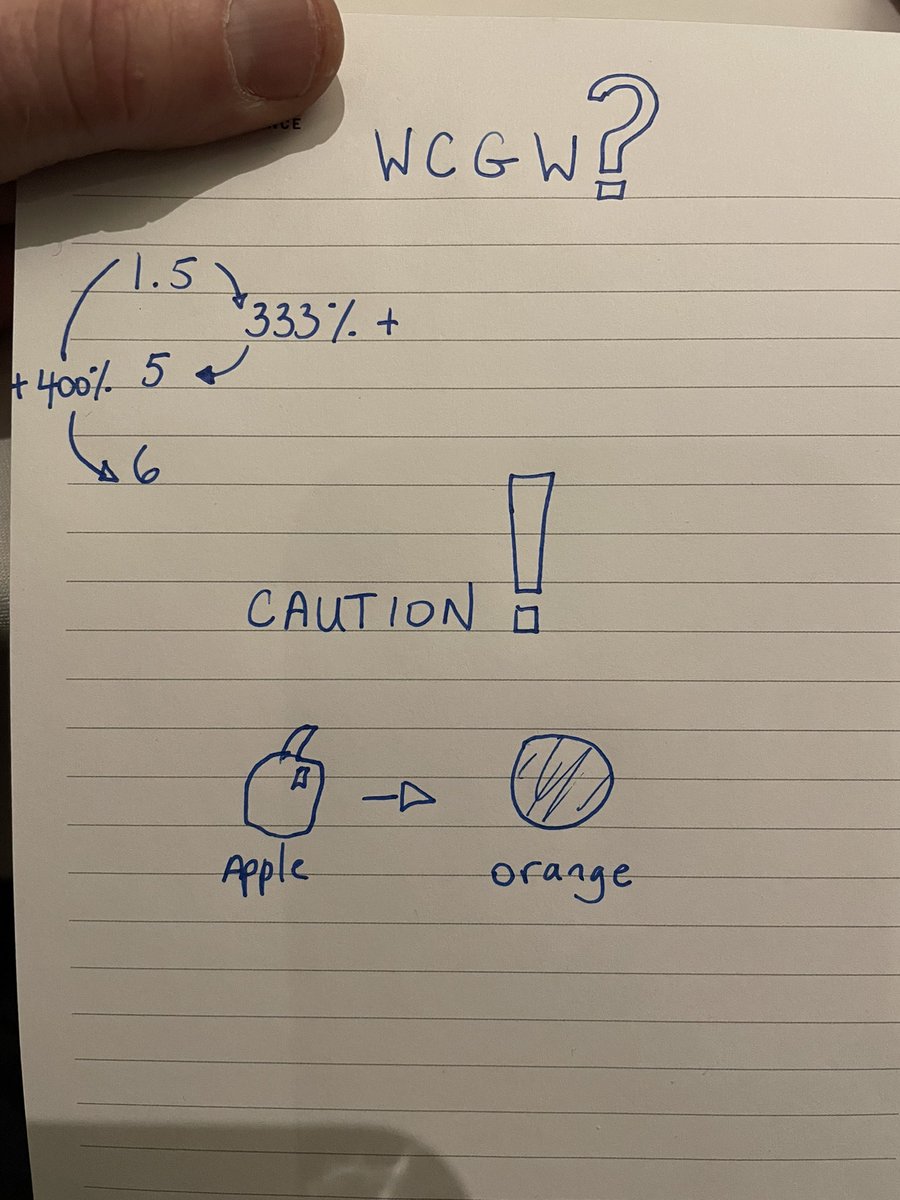 WCGW?
1.5
333% +
+400% 5
6
CAUTION !
Apple
orange